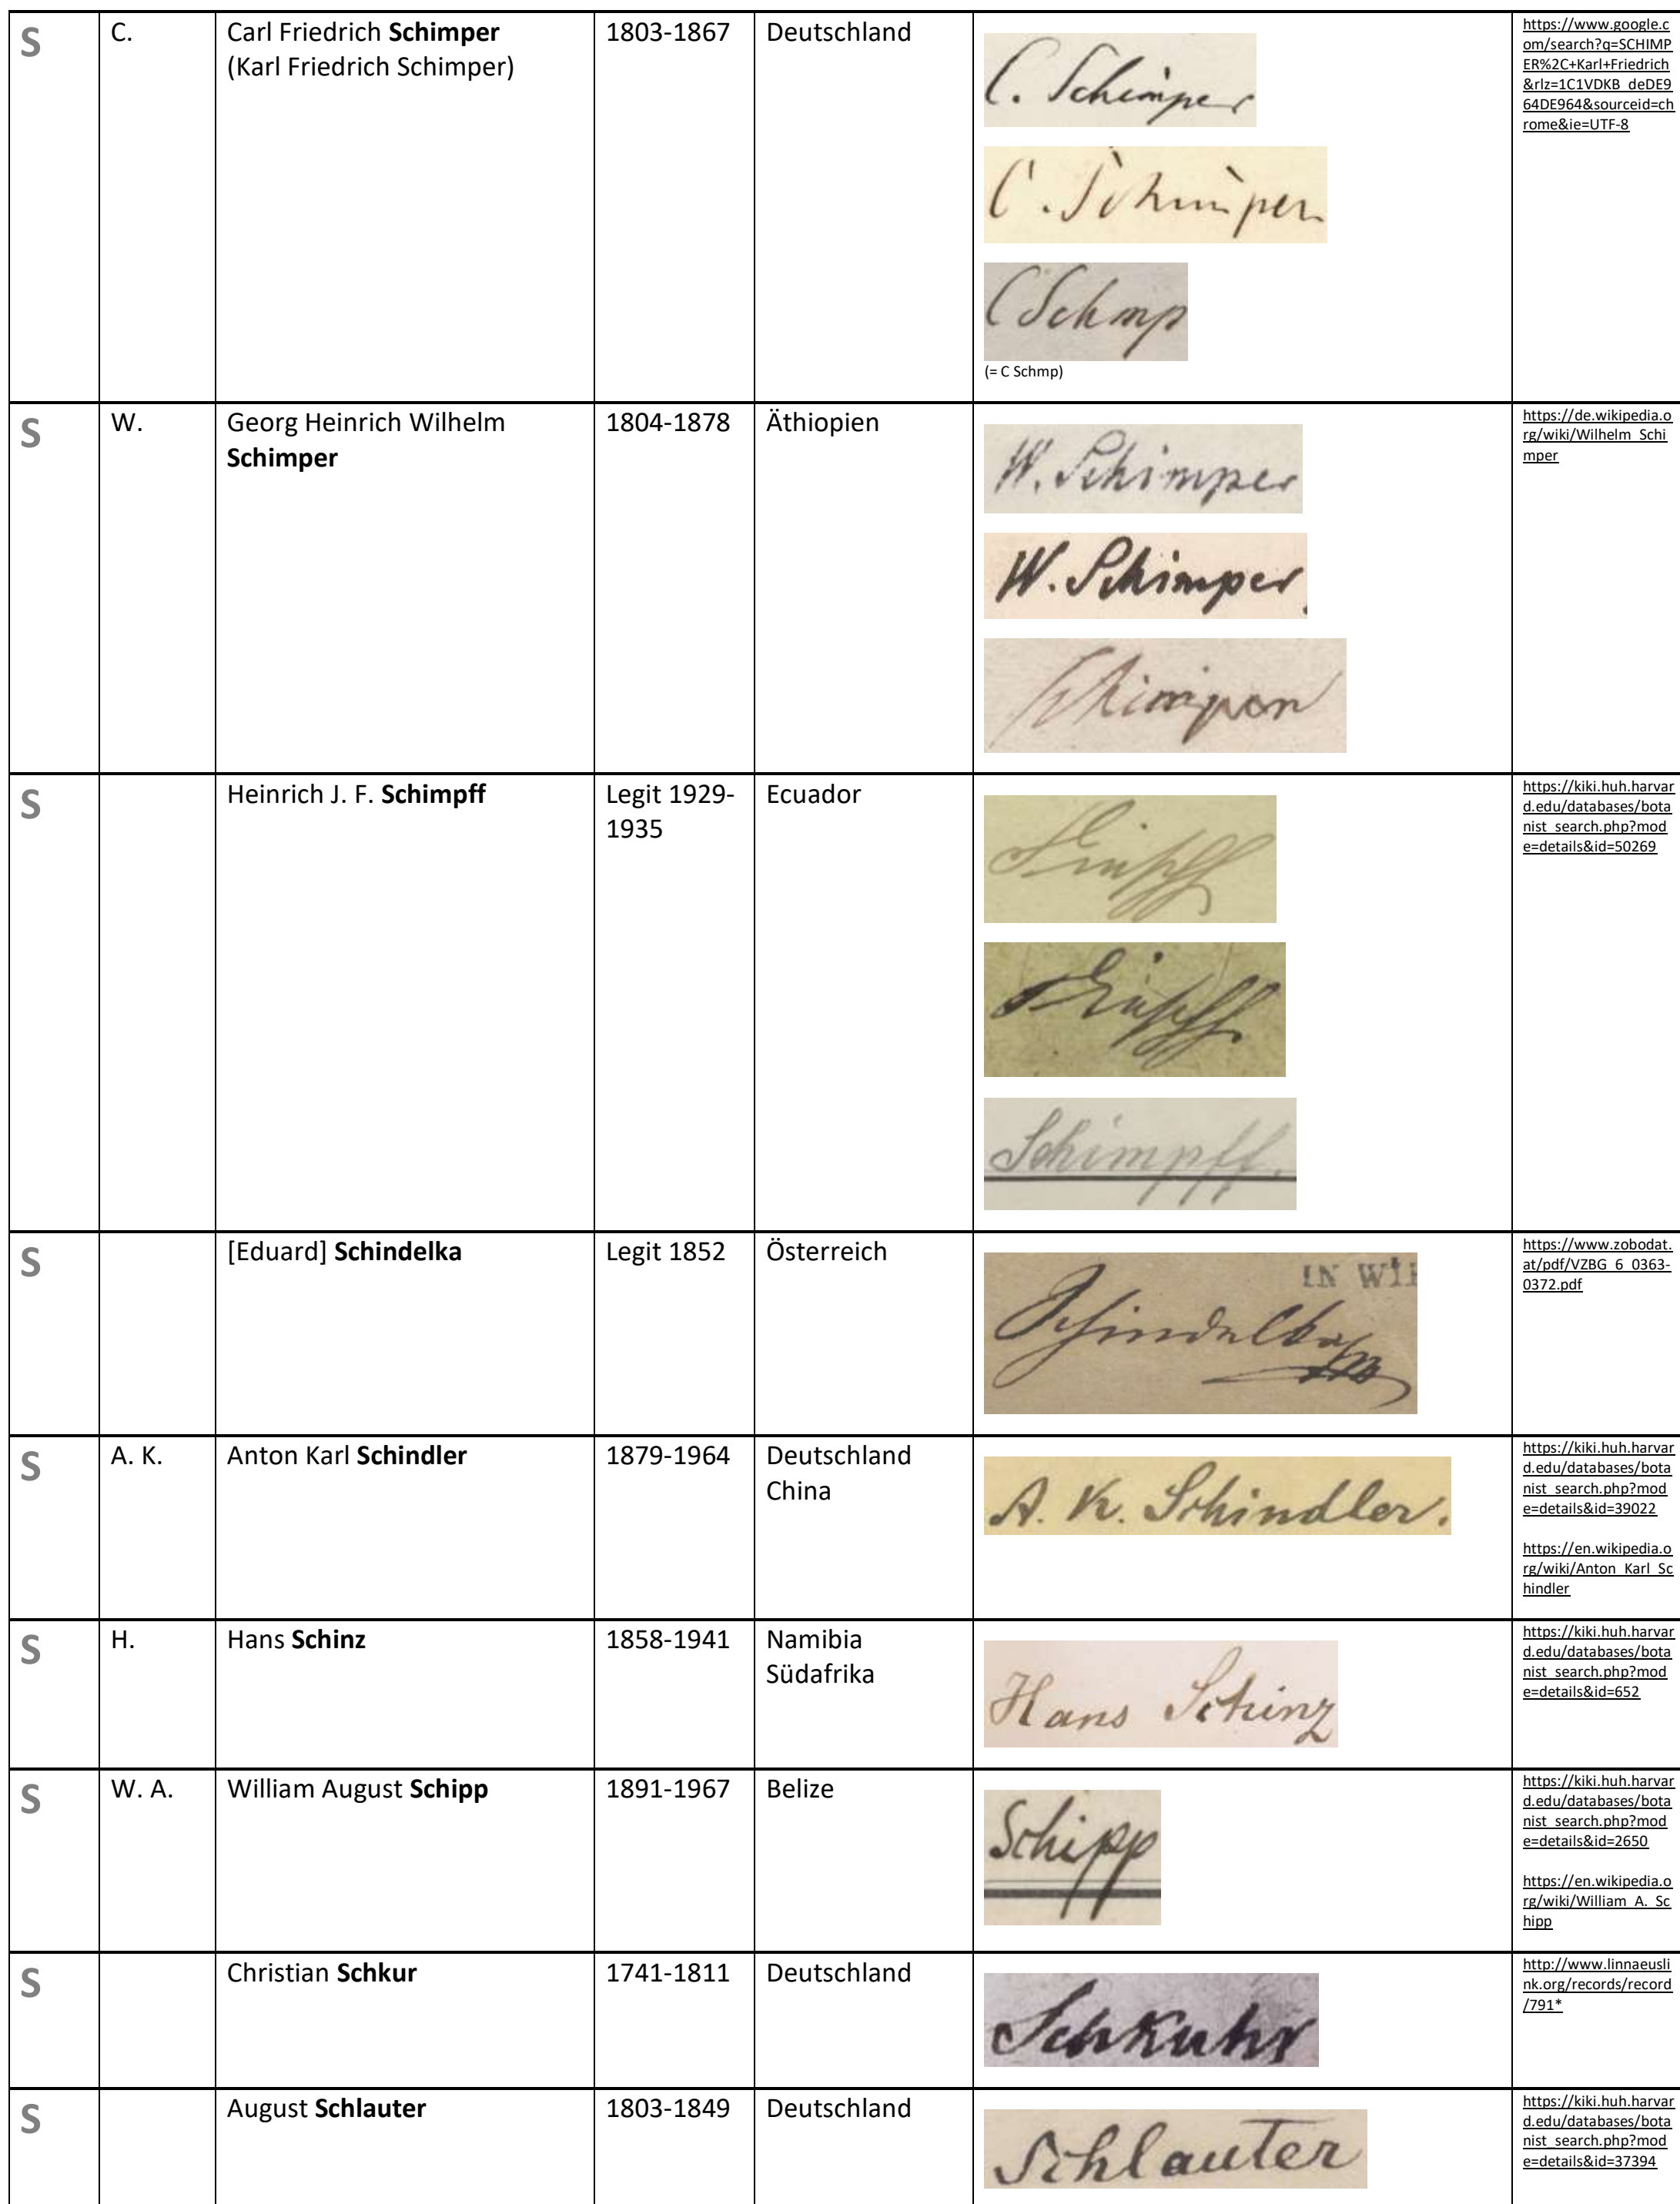 S
C.
Carl Friedrich Schimper
(Karl Friedrich Schimper)
1803-1867
Deutschland
C. Schimper
C. Schimper
C Schmp
(= C Schmp)
https://www.google.c
om/search?q=SCHIMP
ER%2C+Karl+Friedrich
&rlz=1C1VDKB_deDE9
64DE964&sourceid=ch
rome&ie=UTF-8
S
W.
Georg Heinrich Wilhelm
Schimper
1804-1878
Äthiopien
W. Schimper
W. Schimper.
Schimper
https://de.wikipedia.o
rg/wiki/Wilhelm_Schi
mper
S
Heinrich J. F. Schimpff
Legit 1929-
1935
Ecuador
Schimpff.
https://kiki.huh.harvar
d.edu/databases/bota
nist_search.php?mod
e=details&id=50269
S
[Eduard] Schindelka
Legit 1852
Österreich
IN WIE
Schindelka
https://www.zobodat.
at/pdf/VZBG_6_0363-
0372.pdf
S
A. K.
Anton Karl Schindler
1879-1964
Deutschland
China
A. K. Schindler.
https://kiki.huh.harvar
d.edu/databases/bota
nist_search.php?mod
e=details&id=39022
https://en.wikipedia.o
rg/wiki/Anton_Karl_Sc
hindler
S
H.
Hans Schinz
1858-1941
Namibia
Südafrika
Hans Schinz
https://kiki.huh.harvar
d.edu/databases/bota
nist_search.php?mod
e=details&id=652
S
W. A.
William August Schipp
1891-1967
Belize
Schipp
https://kiki.huh.harvar
d.edu/databases/bota
nist_search.php?mod
e=details&id=2650
https://en.wikipedia.o
rg/wiki/William_A._Sc
hipp
S
Christian Schkur
1741-1811
Deutschland
Schkuhr
http://www.linnaeusli
nk.org/records/record
/791*
S
August Schlauter
1803-1849
Deutschland
Schlauter
https://kiki.huh.harvar
d.edu/databases/bota
nist_search.php?mod
e=details&id=37394